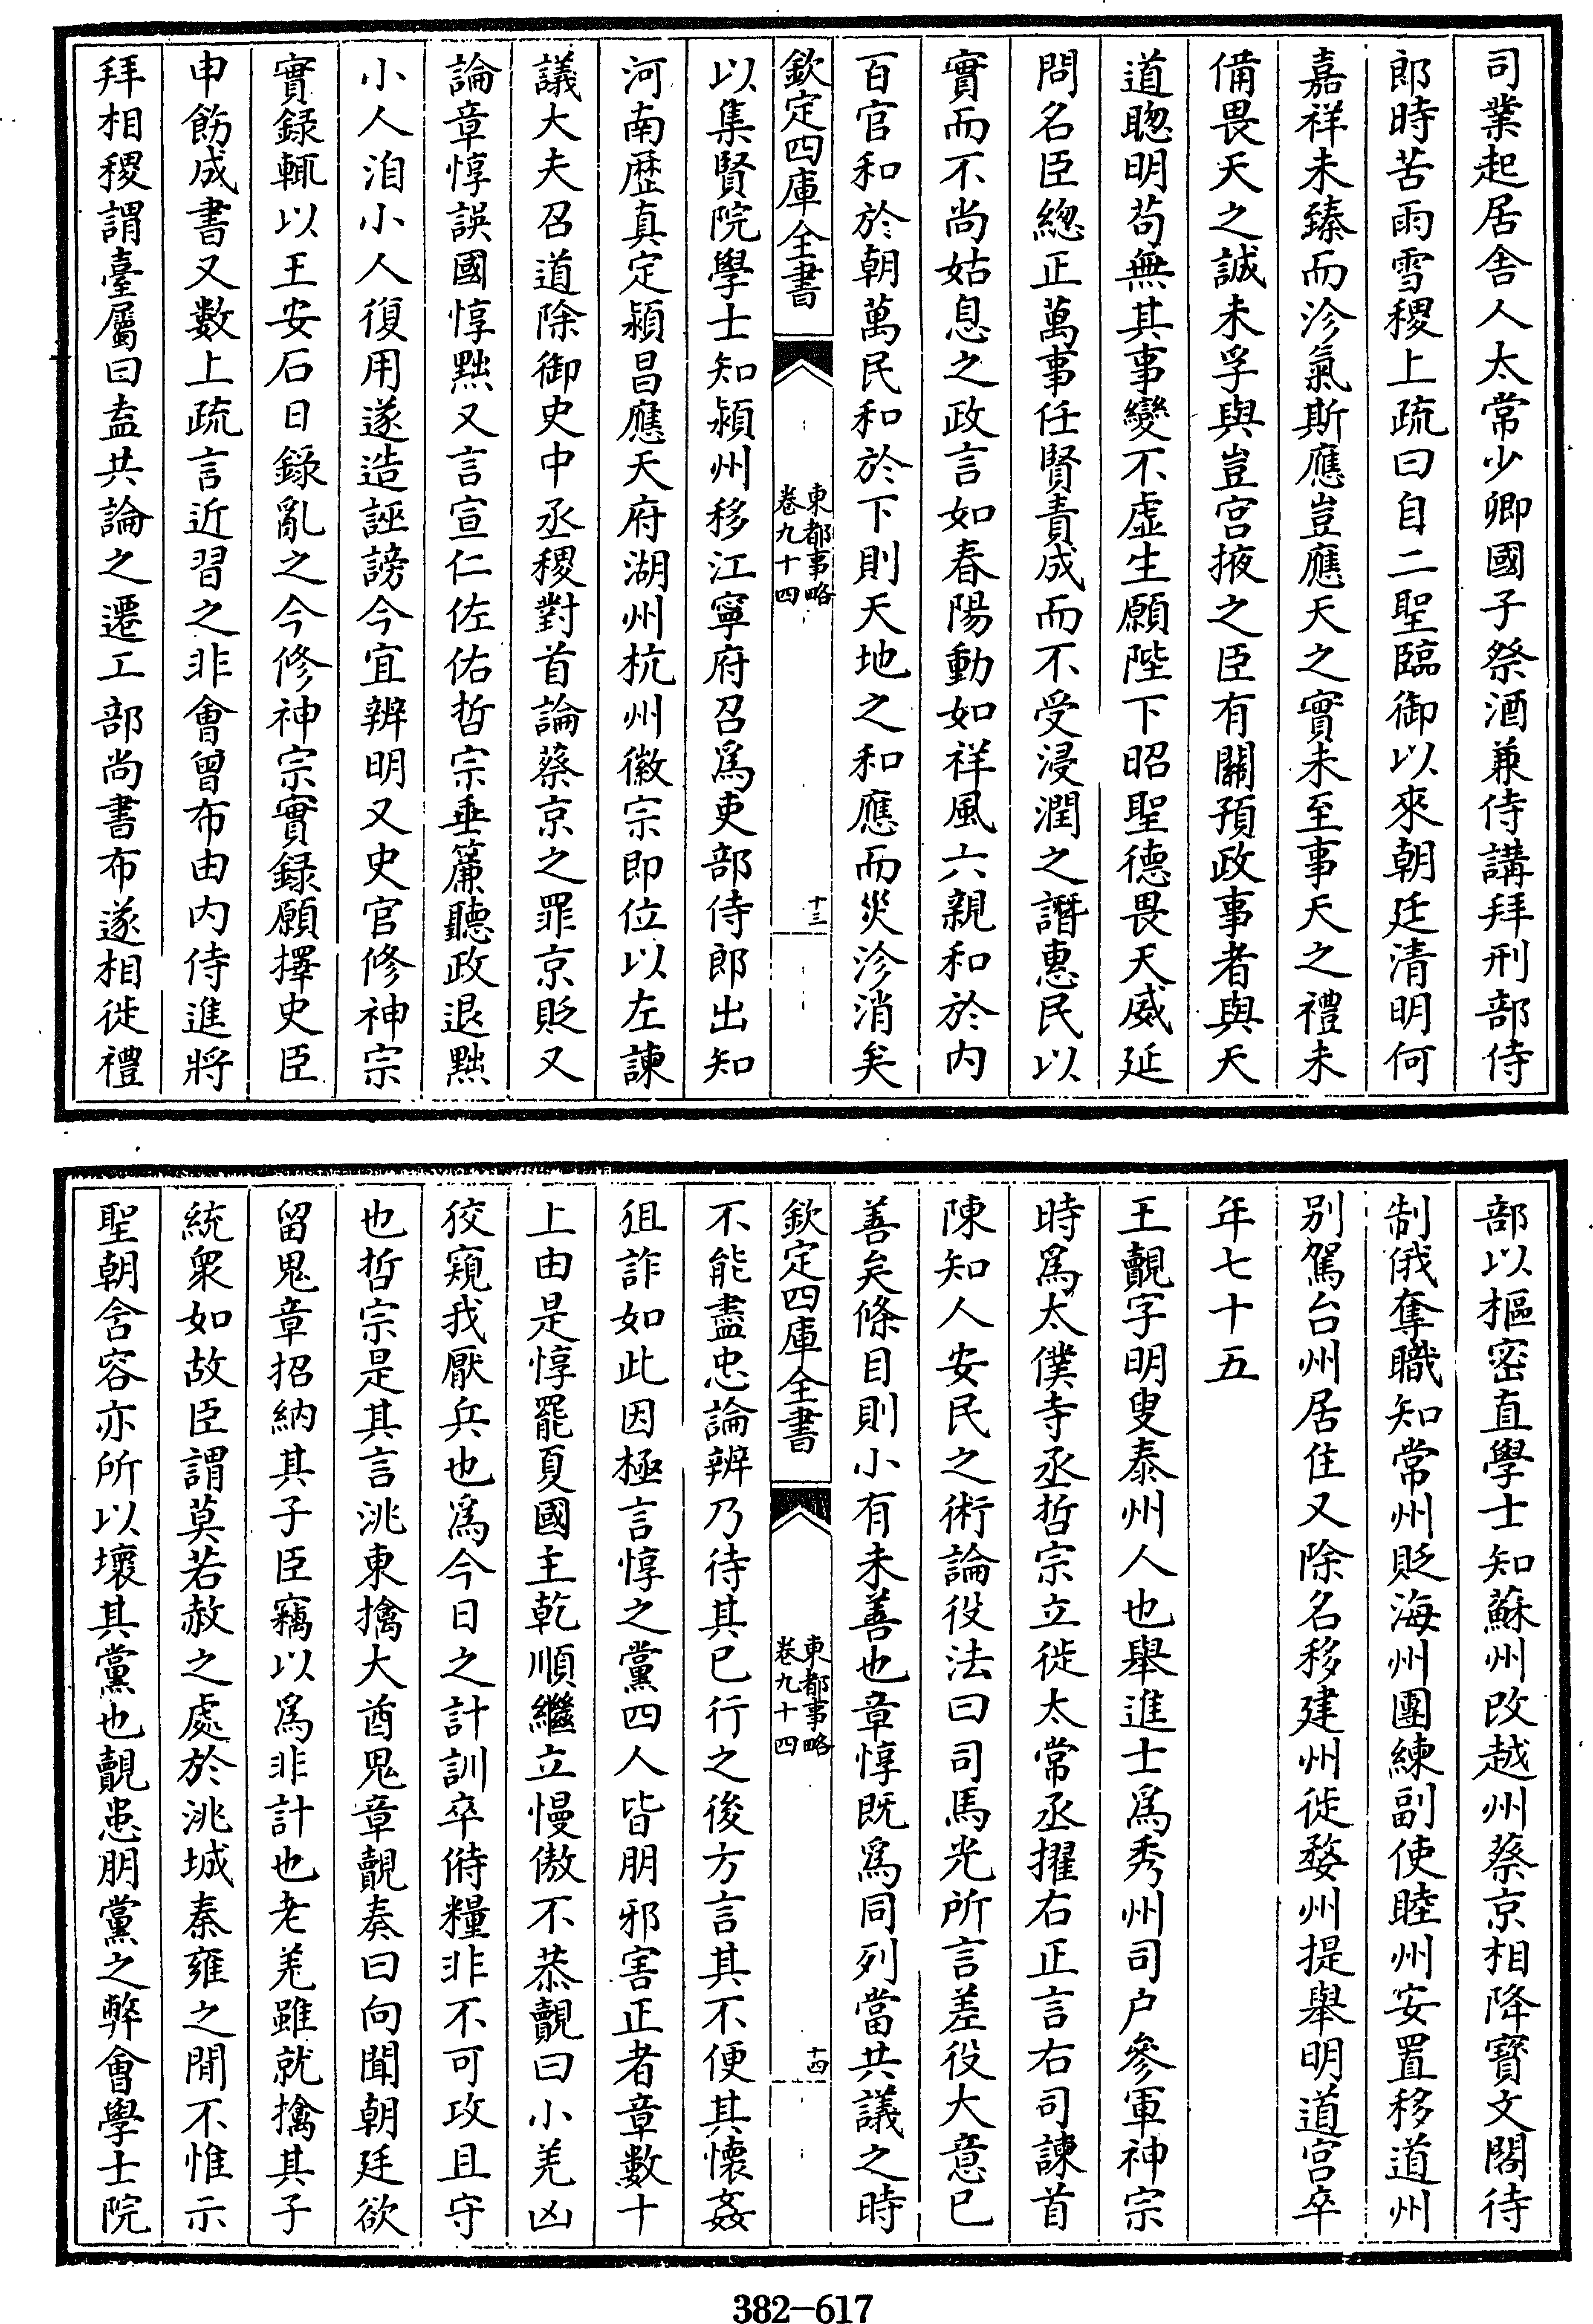 司業起居舎人太常少卿國子祭酒兼侍講拜刑部侍
郎時苦雨雪稷上疏曰自二聖臨御以來朝廷清明何
嘉祥未臻而沴氣斯應豈應天之實未至事天之禮未
備畏天之誠未孚與豈宫掖之臣有關預政事者與天
道聰明苟無其事變不虚生願陛下昭聖德畏天威延
問名臣總正萬事任賢責成而不受浸潤之譖惠民以
實而不尚姑息之政言如春陽動如祥風六親和於内
百官和於朝萬民和於下則天地之和應而災沴消矣
欽定四庫全書
東都事略
卷九十四
十三
以集賢院學士知潁州移江寧府召爲吏部侍郎出知
河南歴真定潁昌應天府湖州杭州徽宗即位以左諫
議大夫召道除御史中丞稷對首論蔡京之罪京貶又
論章惇誤國惇黜又言宣仁佐佑哲宗垂簾聽政退黜
小人洎小人復用遂造誣謗今宜辨明又史官修神宗
實録輒以王安石日録亂之今修神宗實録願擇史臣
申飭成書又數上疏言近習之非會曾布由内侍進將
拜相稷謂臺屬曰盍共論之遷工部尚書布遂相徙禮
部以樞密直學士知蘇州改越州蔡京相降寶文閣待
制俄奪職知常州貶海州團練副使睦州安置移道州
别駕台州居住又除名移建州徙婺州提舉明道宫卒
年七十五
王覿字明叟泰州人也舉進士爲秀州司户參軍神宗
時爲太僕寺丞哲宗立徙太常丞擢右正言右司諫首
陳知人安民之術論役法曰司馬光所言差役大意已
善矣條目則小有未善也章惇既爲同列當共議之時
欽定四庫全書
東都事略
卷九十四
十四
不能盡忠論辨乃待其已行之後方言其不便其懷姦
狙詐如此因極言惇之黨四人皆朋邪害正者章數十
上由是惇罷夏國主乾順繼立慢傲不恭覿曰小羌凶
狡窺我厭兵也爲今日之計訓卒偫糧非不可攻且守
也哲宗是其言洮東擒大酋鬼章覿奏曰向聞朝廷欲
留鬼章招納其子臣竊以爲非計也老羌雖就擒其子
統衆如故臣謂莫若赦之處於洮城秦雍之閒不惟示
聖朝含容亦所以壞其黨也覿患朋黨之弊會學士院
382-617